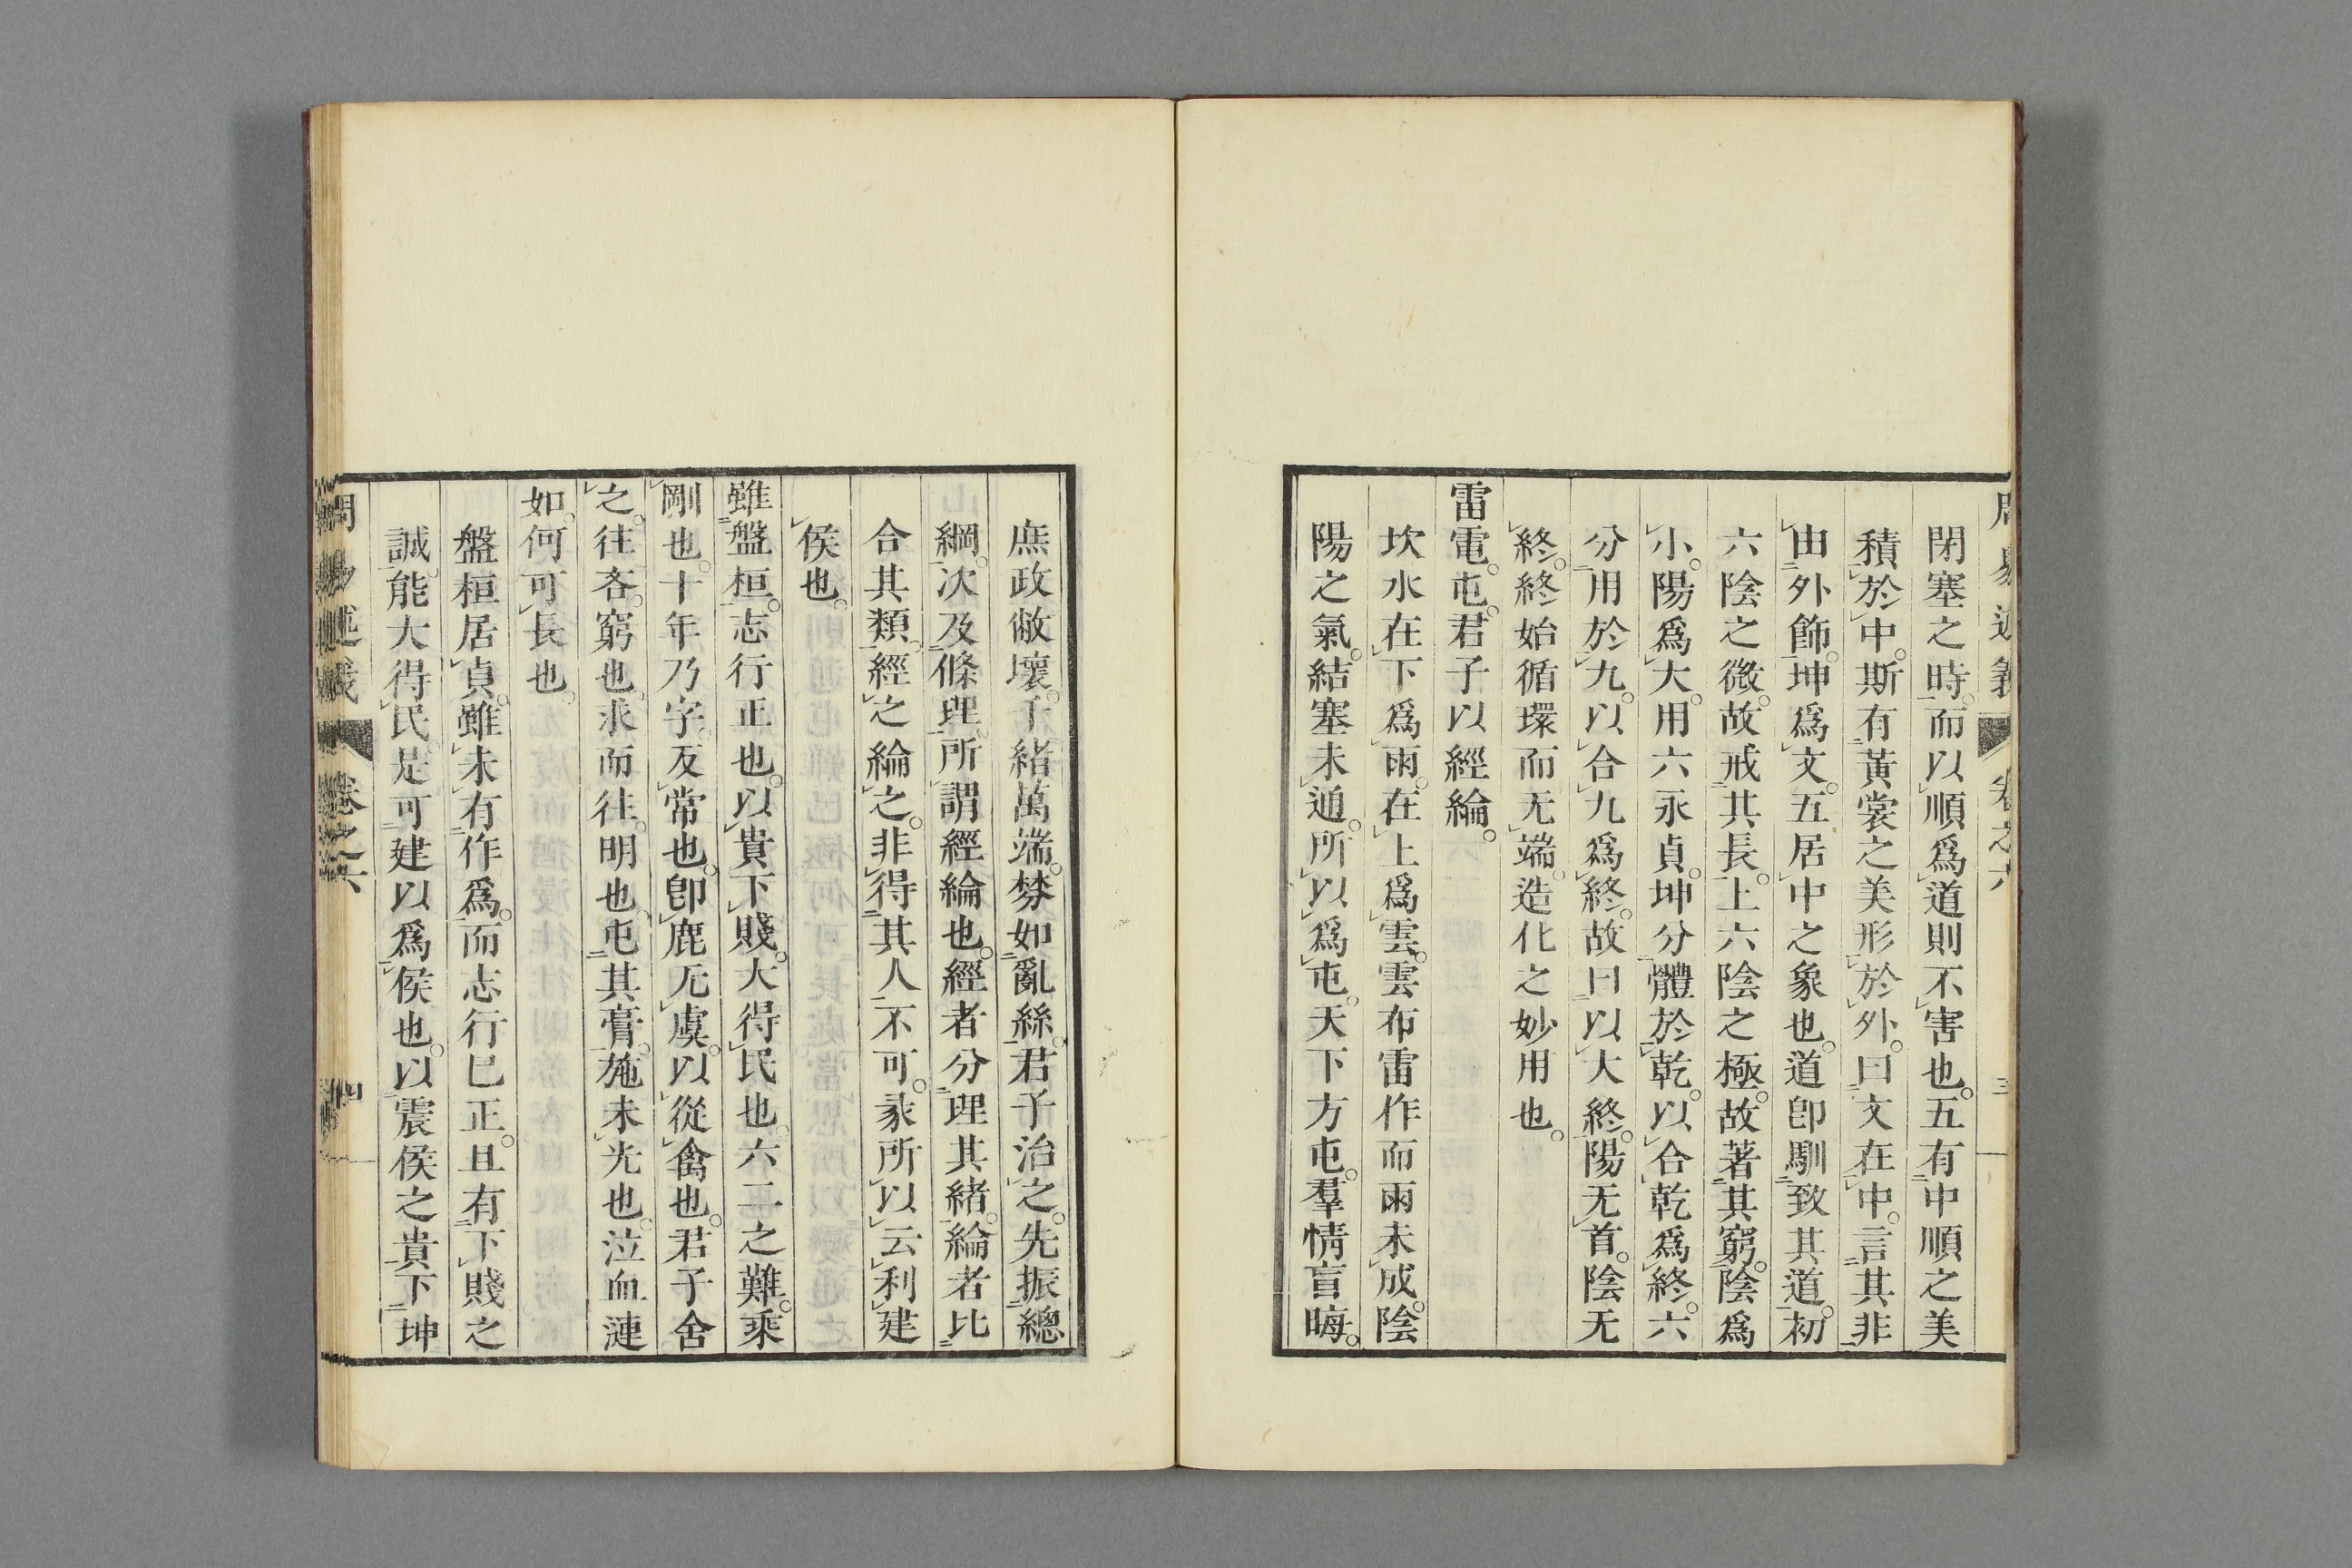 周易述義 卷之六 三
閉塞之時。而以順爲道則不害也。五有中順之美
積於中。斯有黃裳之美形於外。曰文在中。言其非
由外飾。坤爲文。五居中之象也。道卽馴致其道。初
六陰之微。故戒其長。上六陰之極。故著其窮。陰爲
小。陽爲大。用六永貞。坤分體於乾。以合乾爲終。六
分用於九。以合九爲終。故曰以大終。陽无首。陰无
終。終始循環而无端。造化之妙用也。
雷電。屯。君子以經綸。
坎水在下爲雨。在上爲雲。雲布雷作而雨未成。陰
陽之氣。結塞未通。所以爲屯。天下方屯。羣情盲晦。
庶政敝壞。千緒萬端。棼如亂絲。君子治之。先振總
綱。次及條理。所謂經綸也。經者分理其緒。綸者比
合其類。經之綸之。非得其人不可。彖所以云利建
侯也。
雖盤桓。志行正也。以貴下賤。大得民也。六二之難。乘
剛也。十年乃字。反常也。卽鹿无虞。以從禽也。君子舍
之。往吝。窮也。求而往。明也。屯其膏。施未光也。泣血漣
如。何可長也。
盤桓居貞。雖未有作爲。而志行已正。且有下賤之
誠。能大得民。是可建以爲侯也。以震侯之貴下坤
周易述義 卷之六 四